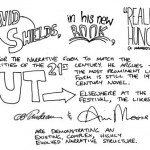 DAVID SHIELDS, in his new BOOK "REALITY HUNGER"
FOR THE NARRATIVE FORM TO MATCH THE
REALITIES OF THE 21st CENTURY. HE ARGUES
MOST PROMINENT
FORM IS STILL THE 19th
CENTURY NOVEL.
BUT
ELSEWHERE AT THE
FESTIVAL, THE LIKES
&
ARE DEMONSTRATING AN
EXISTING, COMPLEX, HIGHLY
EVOLVED NARRATIVE STRUCTURE.